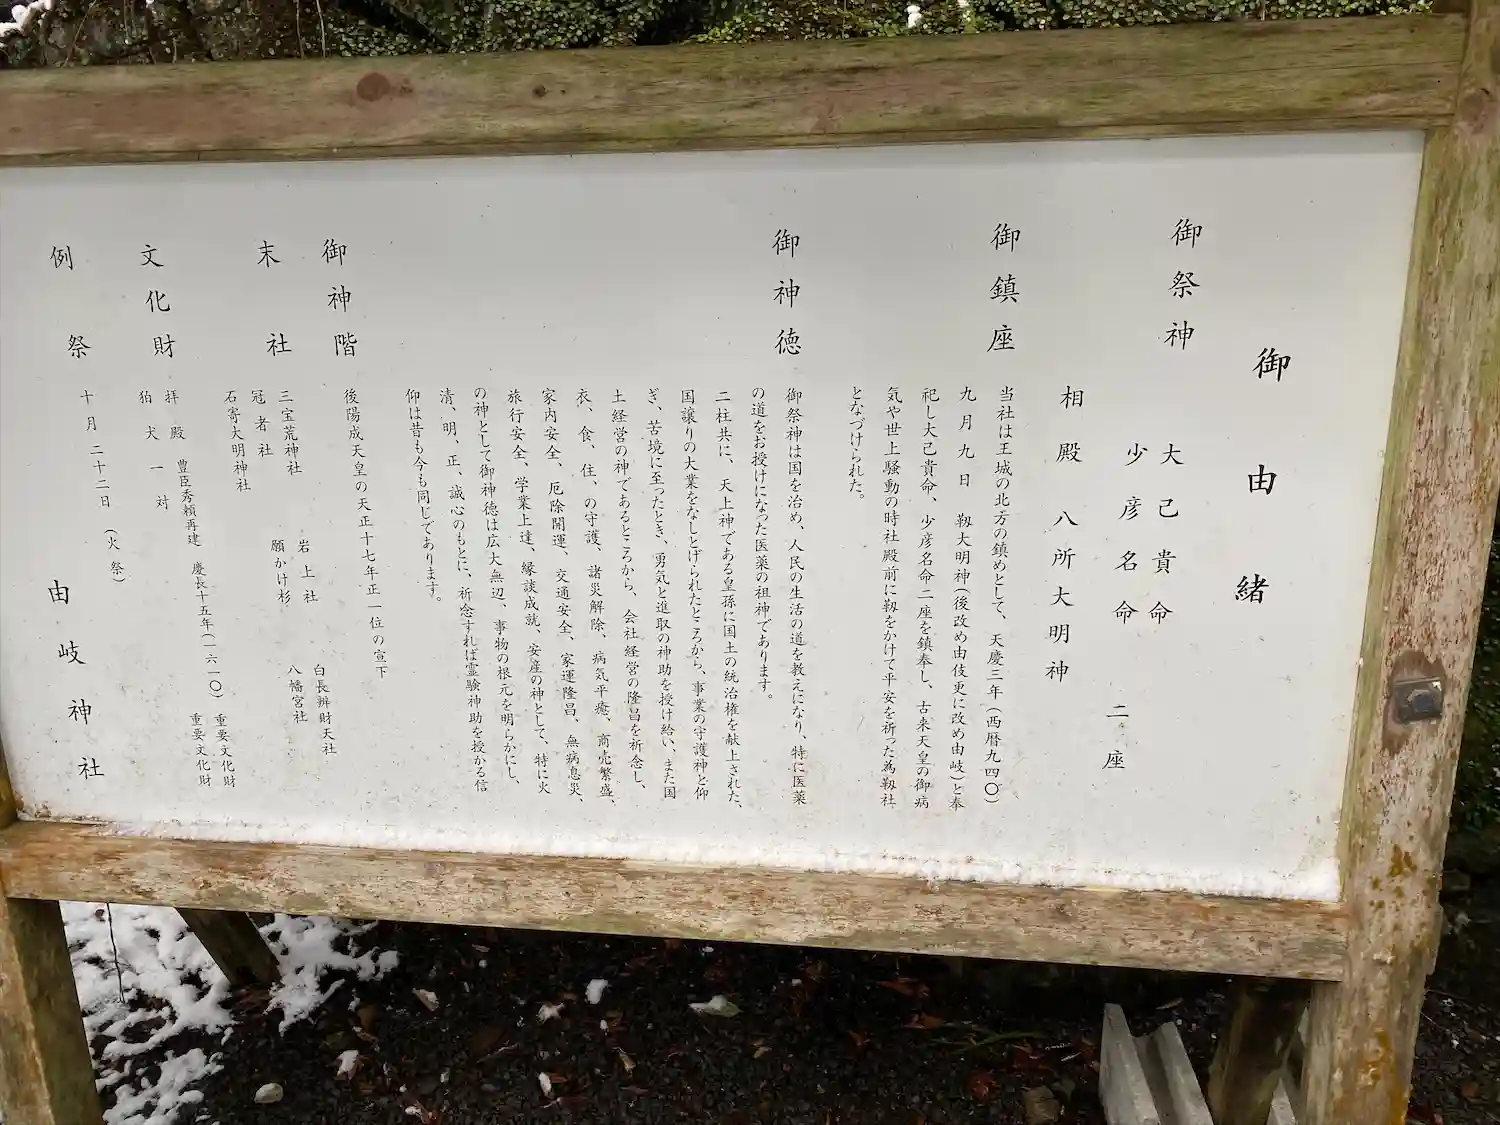 御由緒
御祭神
大己貴命
少彦名命 二座
相殿 八所大明神
御鎮座
当社は王城の北方の鎮めとして、天慶三年(西暦九四〇)
九月九日 靱大明神(後改め由伎更に改め由岐)と奉
祀し大己貴命、少彦名命二座を鎮奉し、古来天皇の御病
気や世上騒動の時社殿前に靱をかけて平安を祈った為靱社
となづけられた。
御神徳
御祭神は国を治め、人民の生活の道を教えになり、特に医薬
の道をお授けになった医薬の祖神であります。
二柱共に、天上神である皇孫に国土の統治権を献上された、
国譲りの大業をなしとげられたところから、事業の守護神と仰
ぎ、苦境に至ったとき、勇気と進取の神助を授け給い、また国
土経営の神であるところから、会社経営の隆昌を祈念し、
衣、食、住、の守護、諸災解除、病気平癒、商売繁盛、
家内安全、厄除開運、交通安全、家運隆昌、無病息災、
旅行安全、学業上達、縁談成就、安産の神として、特に火
の神として御神徳は広大無辺、事物の根元を明らかにし、
清、明、正、誠心のもとに、祈念すれば霊験神助を授かる信
仰は昔も今も同じであります。
御神階
後陽成天皇の天正十七年正一位の宣下
末社
三宝荒神社 岩上社 白長辨財天社
冠者社 願かけ杉 八幡宮社
石寄大明神社
文化財
拝殿 豊臣秀頼再建 慶長十五年(一六一〇) 重要文化財
狛犬一対 重要文化財
例祭
十月二十二日 (火祭)
由岐神社